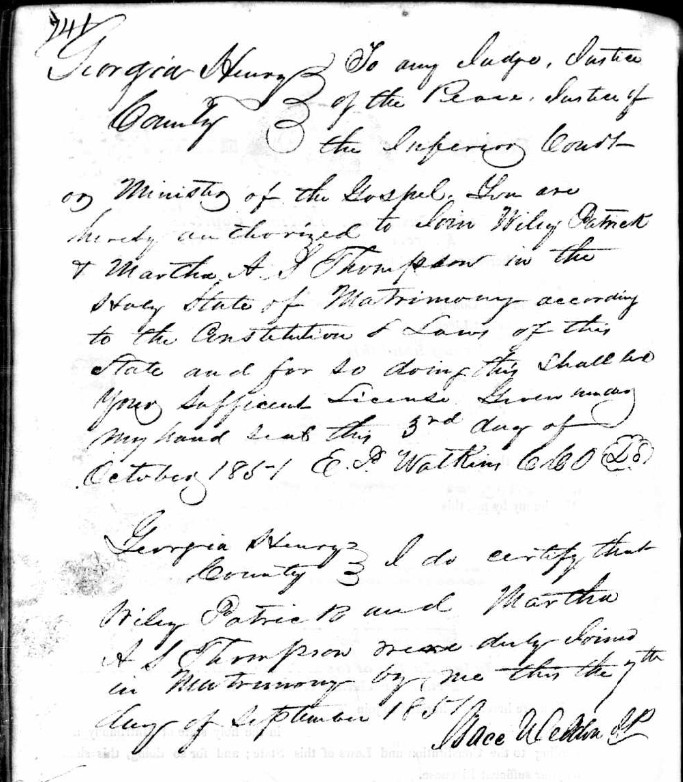 741
Georgia Henry } To any Judge, Justice
County } of the Peace, Justice of
the Inferior Court
or Minister of the Gospel. You are
hereby authorized to Join Wiley Patrick
& Martha A. S Thompson in the
Holy State of Matrimony according
to the Constitution & Laws of this
State and for so doing this Shall be
Your Sufficient License. Given under
my hand seal this 3rd day of
October 1851 E. P. Watkins CCO LS
Georgia Henry }
County } I do certify that
Wiley Patrick and Martha
A S Thompson were duly Joined
in Matrimony by me this the 7th
day of September 1851
Isaac Weldon JP